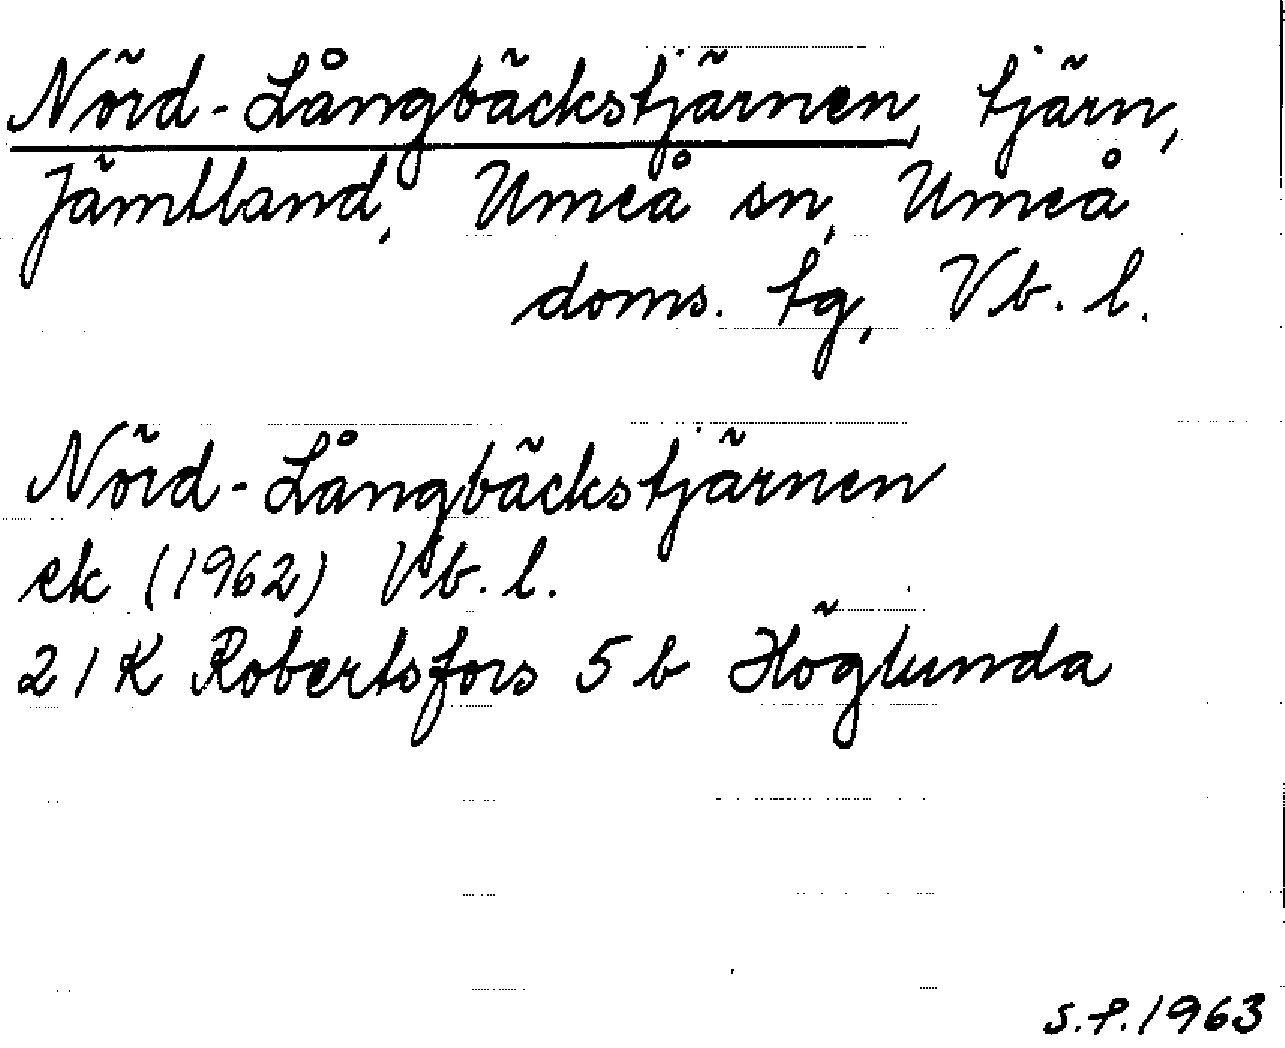 Nörd-Långbäckstjärnen, tjärn,
Jämtland, Umeå sn, Umeå
doms. tg, Vb. l.
Nörd-Långbäckstjärnen
ek (1962) Vb. l.
21K Robertsfors 5b Höglunda
S.P. 1963